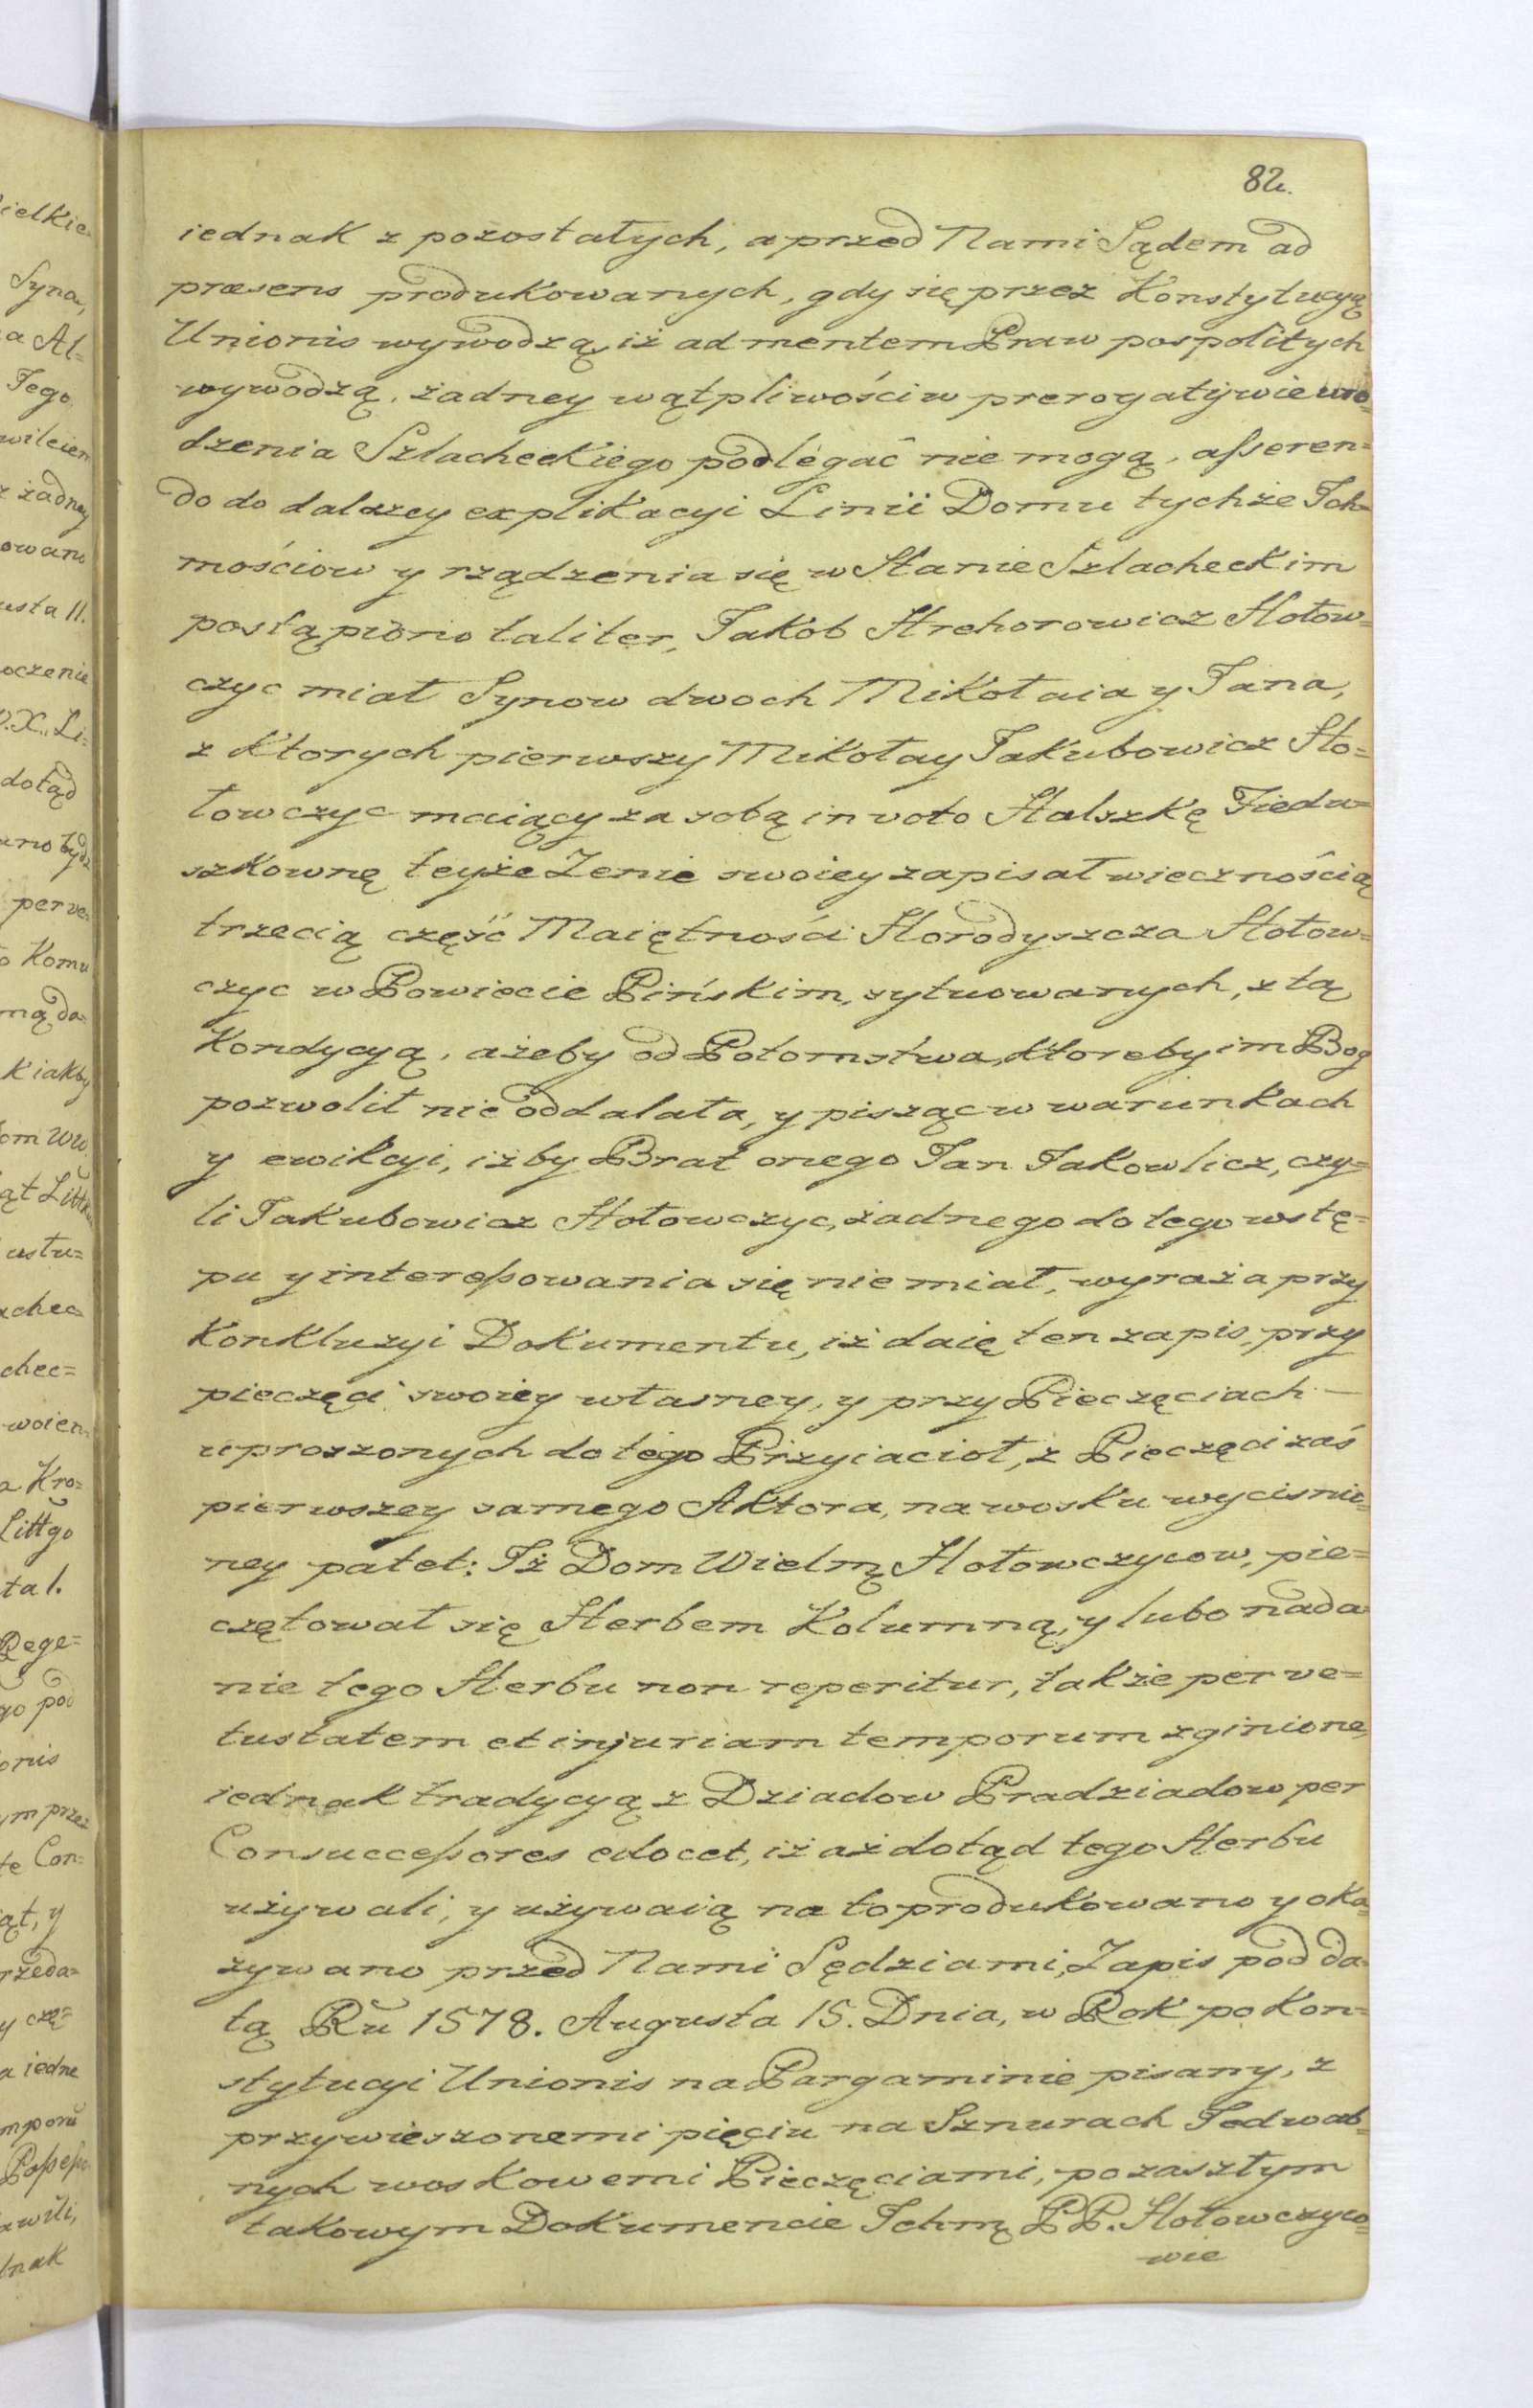 82.
iednak z pozostałych, a przed Nami Sądem ad
præsens produkowanych, gdy się przez Konstytucyą
Unionis wywodzą, iż ad mentem Praw pospolitych
wywodzą, żadney wątpliwości w prerogatywie uro=
dzenia Szlacheckiego podlegać nie mogą, asseren=
do do dalszey explikacyi Linii Domu tychże Ich=
mościow y rządzenia się w Stanie Szlacheckim
postąpiono taliter, Jakob Hrehorowicz Hołow=
czyc miał Synow dwoch Mikołaia y Jana,
z ktorych pierwszy Mikołay Jakubowicz Ho=
łowczyc maiący za sobą in voto Halszkę Fiedu=
szkownę teyże Żenie swoiey zapisał wiecznością
trzecią część Maiętności Horodyszcza Hołow=
czyc w Powiecie Pińskim, sytuowanych, z tą
Kondycyą, ażeby od Potomstwa, ktoreby im Bog
pozwolił nie oddalała, y pisząc w warunkach
y ewikcyi, iżby Brat onego Jan Jakowlicz, czy=
li Jakubowicz Hołowczyc, żadnego do tego wstę=
pu y interessowania się nie miał, wyraża przy
Konkluzyi Dokumentu, iż daię ten zapis, przy
pieczęci swoiey własney, y przy Pieczęciach —
uproszonych do tego Przyiacioł, z Pieczęci zaś
pierwszey samego Aktora, na wosku wycisnio=
ney patet: Iż Dom Wielmą Hołowczycow, pie=
czętował się Herbem Kolumną, y lubo nada
nie tego Herbu non reperitur, także per ve=
tustatem et injuriam temporum zginione,
iednak tradycyą z Dziadow Pradziadow per
Consuccessores edocet, iż aż dotąd tego Herbu
używali, y używaią na to produkowano y oka=
zywano przed Nami Sędziami, Zapis pod da=
tą Rŭ 1578. Augusta 15. Dnia, w Rok po Kon=
stytucyi Unionis na Pargaminie pisany, z
przywieszonemi pięciu na Sznurach Jedwab=
nych woskowemi Pieczęciami, po zaszłym
takowym Dokumencie Ichmą PP. Hołowczyco=
wie